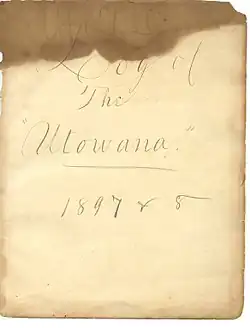 Log of
The
"Utowana."
1897 & 8